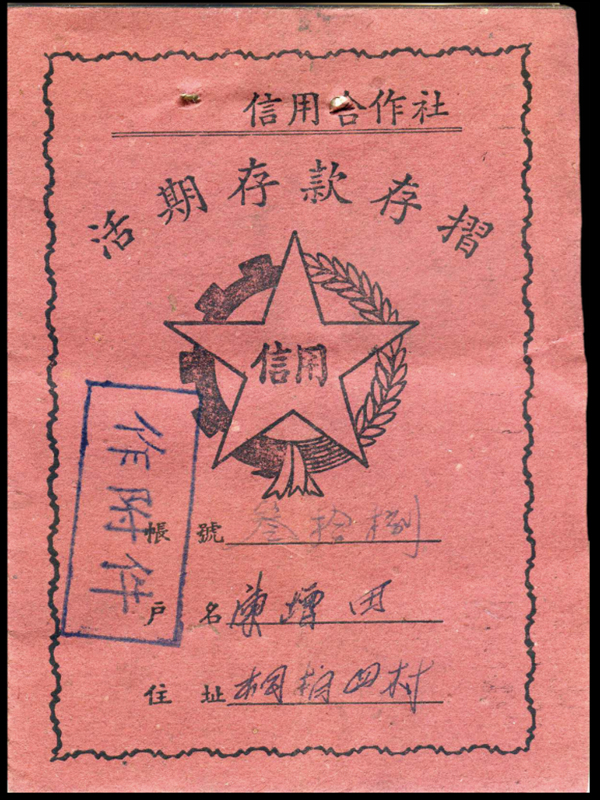 信用合作社
活期存款存摺
信用
作附件
帳號 叁拾捌
戶名 陳增田
住址 桐柏四村